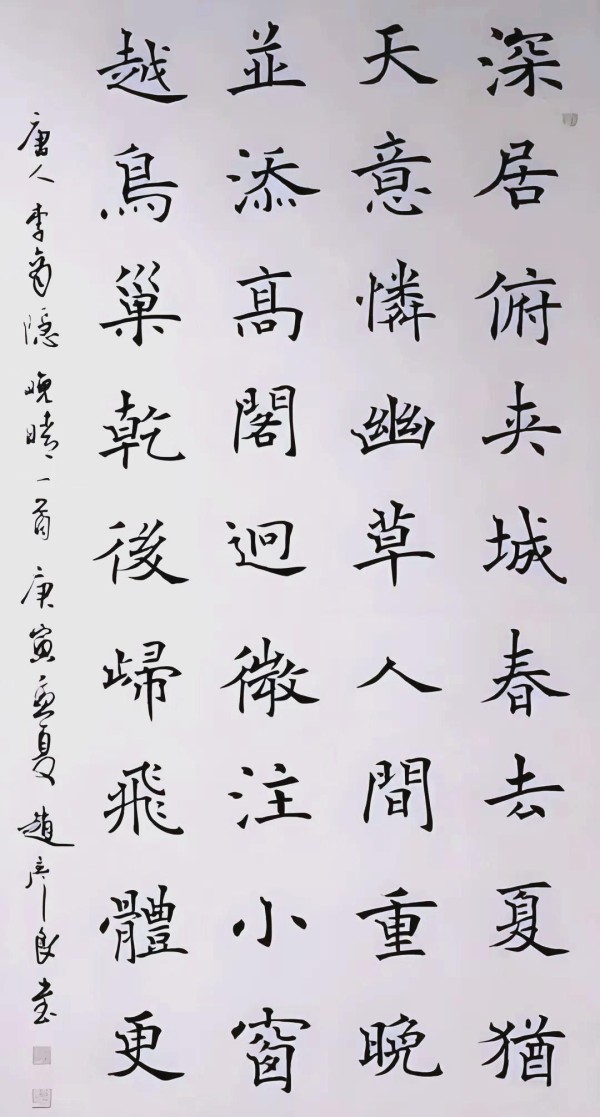 深居俯夹城春去夏猶
天意憐幽草人間重晚
並添髙閣迥微注小窗
越鳥巢乾後歸飛體更
唐人李商隱晚晴一首庚寅夏趙良書